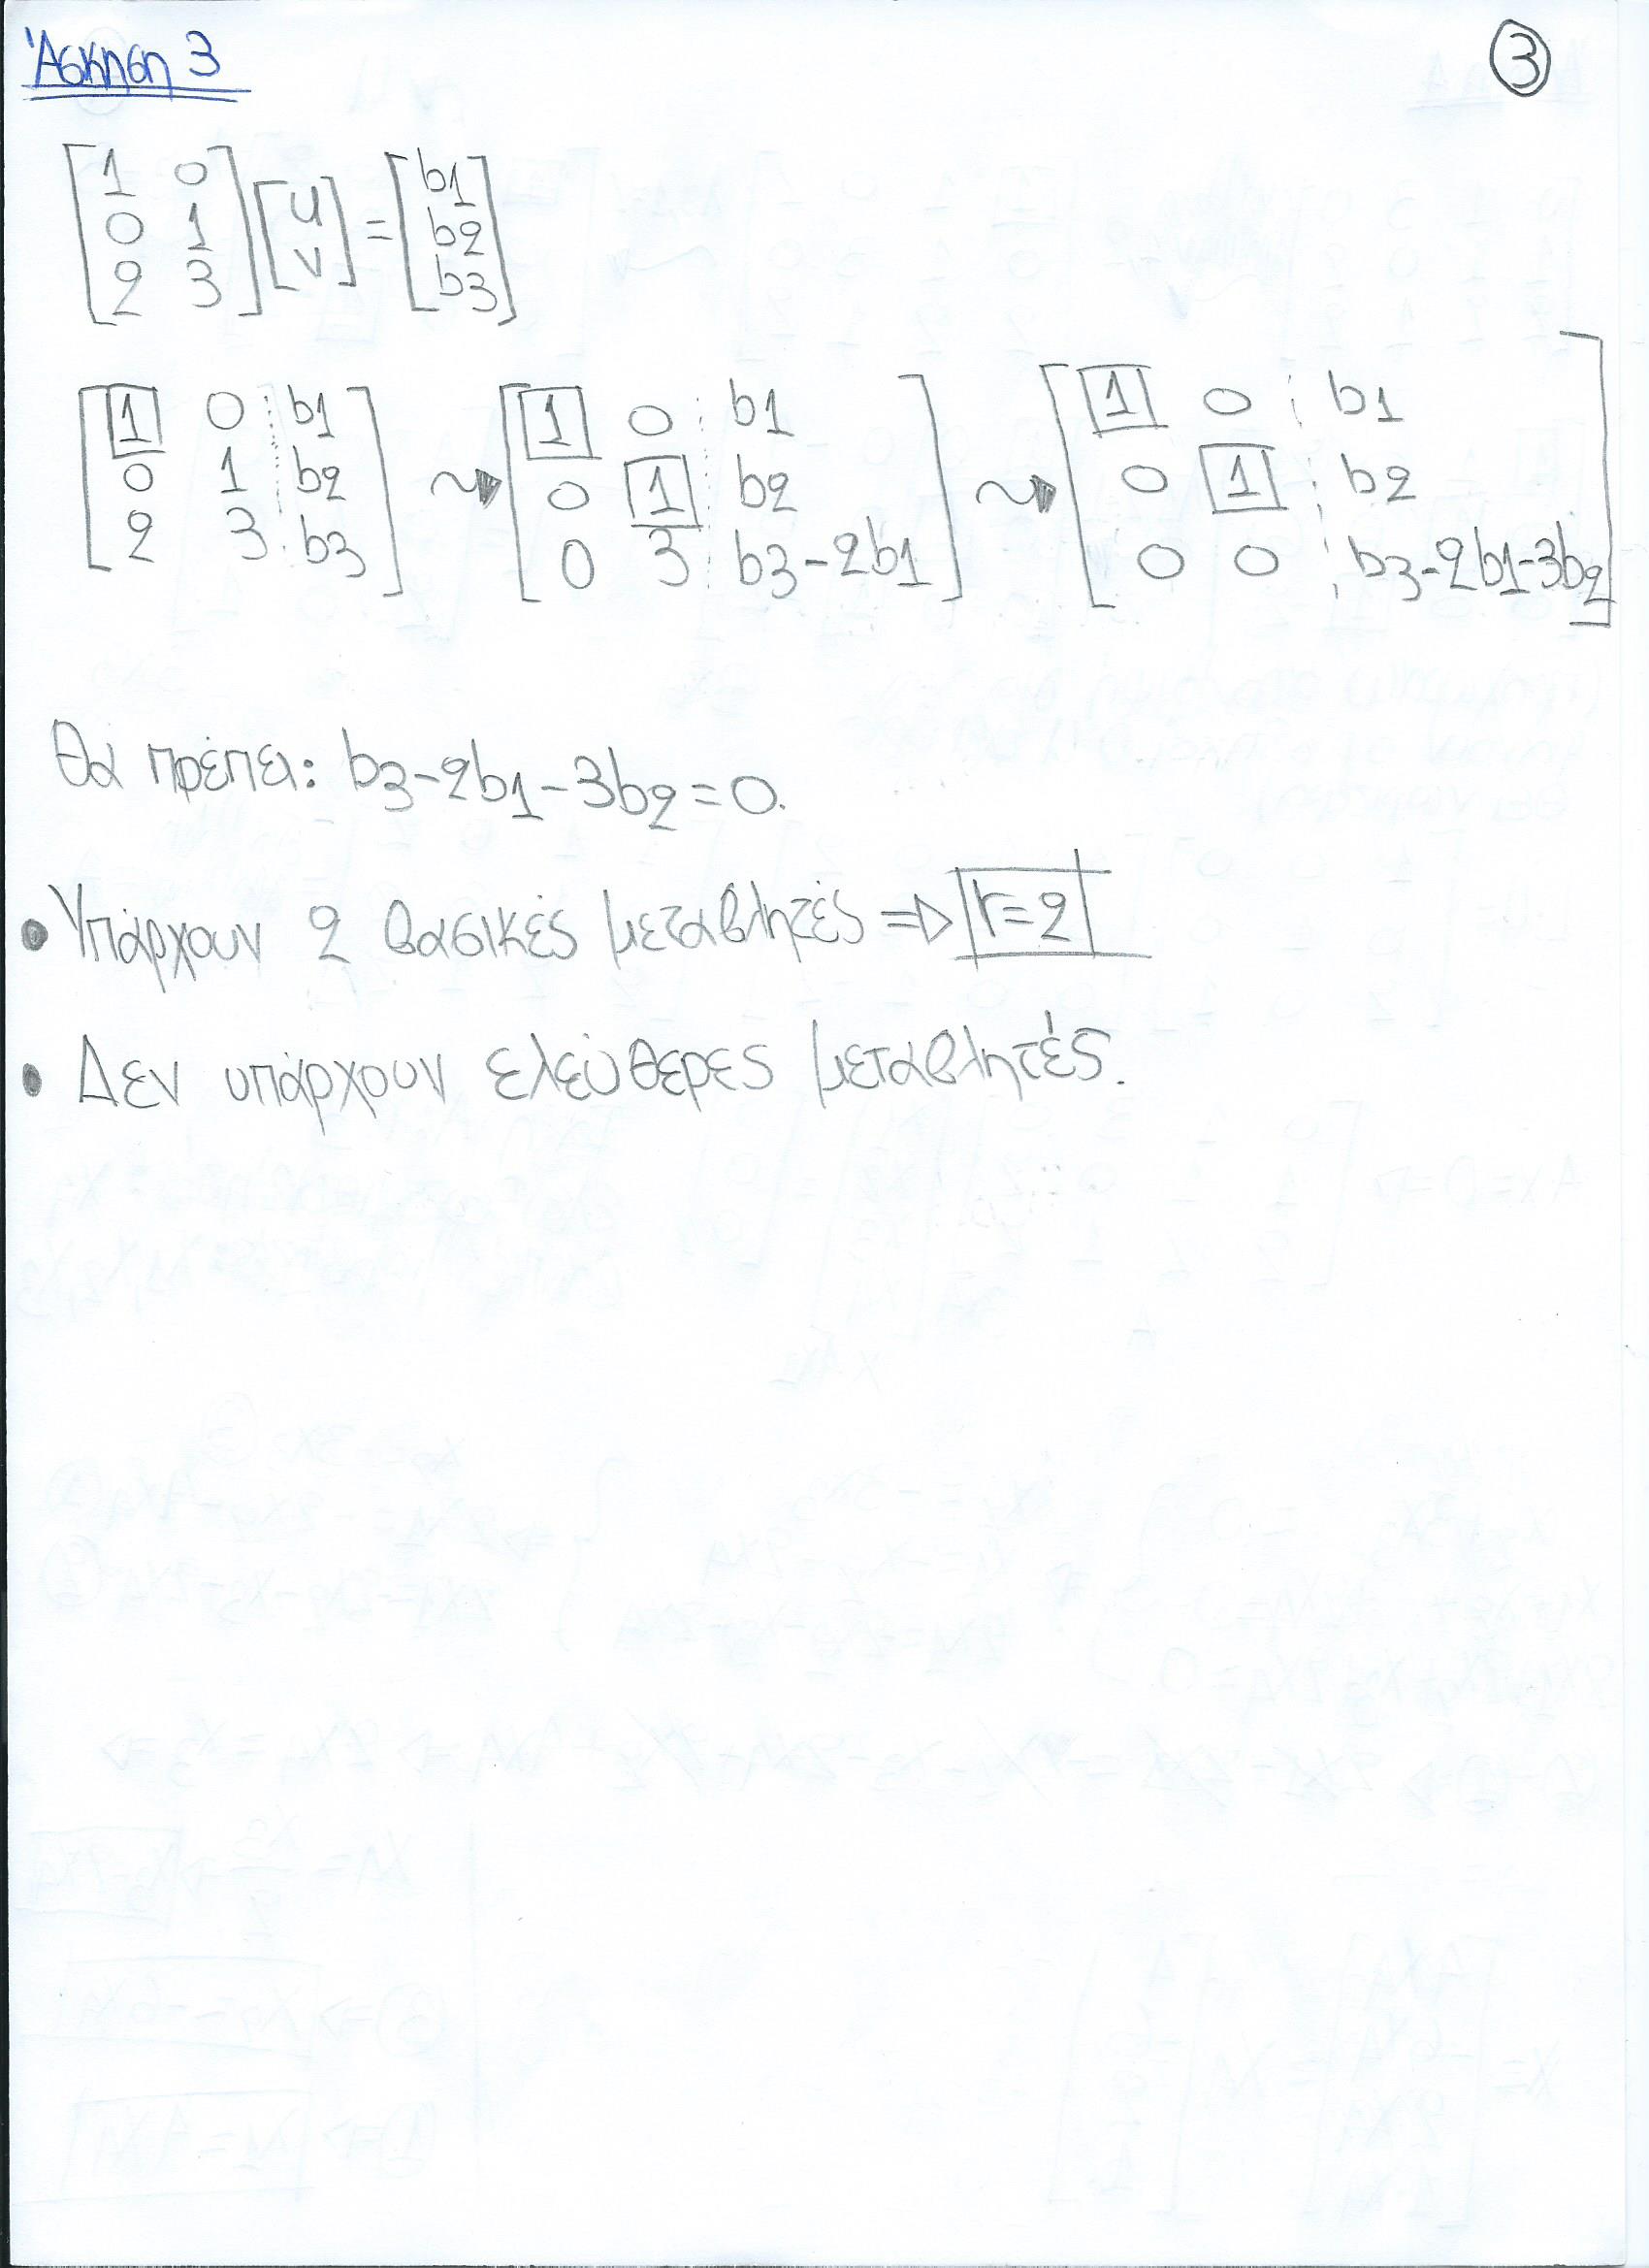 Άσκηση 3
3
[1 0; 0 1; 2 3] [u; v] = [b1; b2; b3]
[1 0 ⋮ b1; 0 1 ⋮ b2; 2 3 ⋮ b3] ⇝ [1 0 ⋮ b1; 0 1 ⋮ b2; 0 3 ⋮ b3-2b1] ⇝ [1 0 ⋮ b1; 0 1 ⋮ b2; 0 0 ⋮ b3-2b1-3b2]
Θα πρέπει: b3-2b1-3b2=0.
• Υπάρχουν 2 βασικές μεταβλητές => r=2
• Δεν υπάρχουν ελεύθερες μεταβλητές.